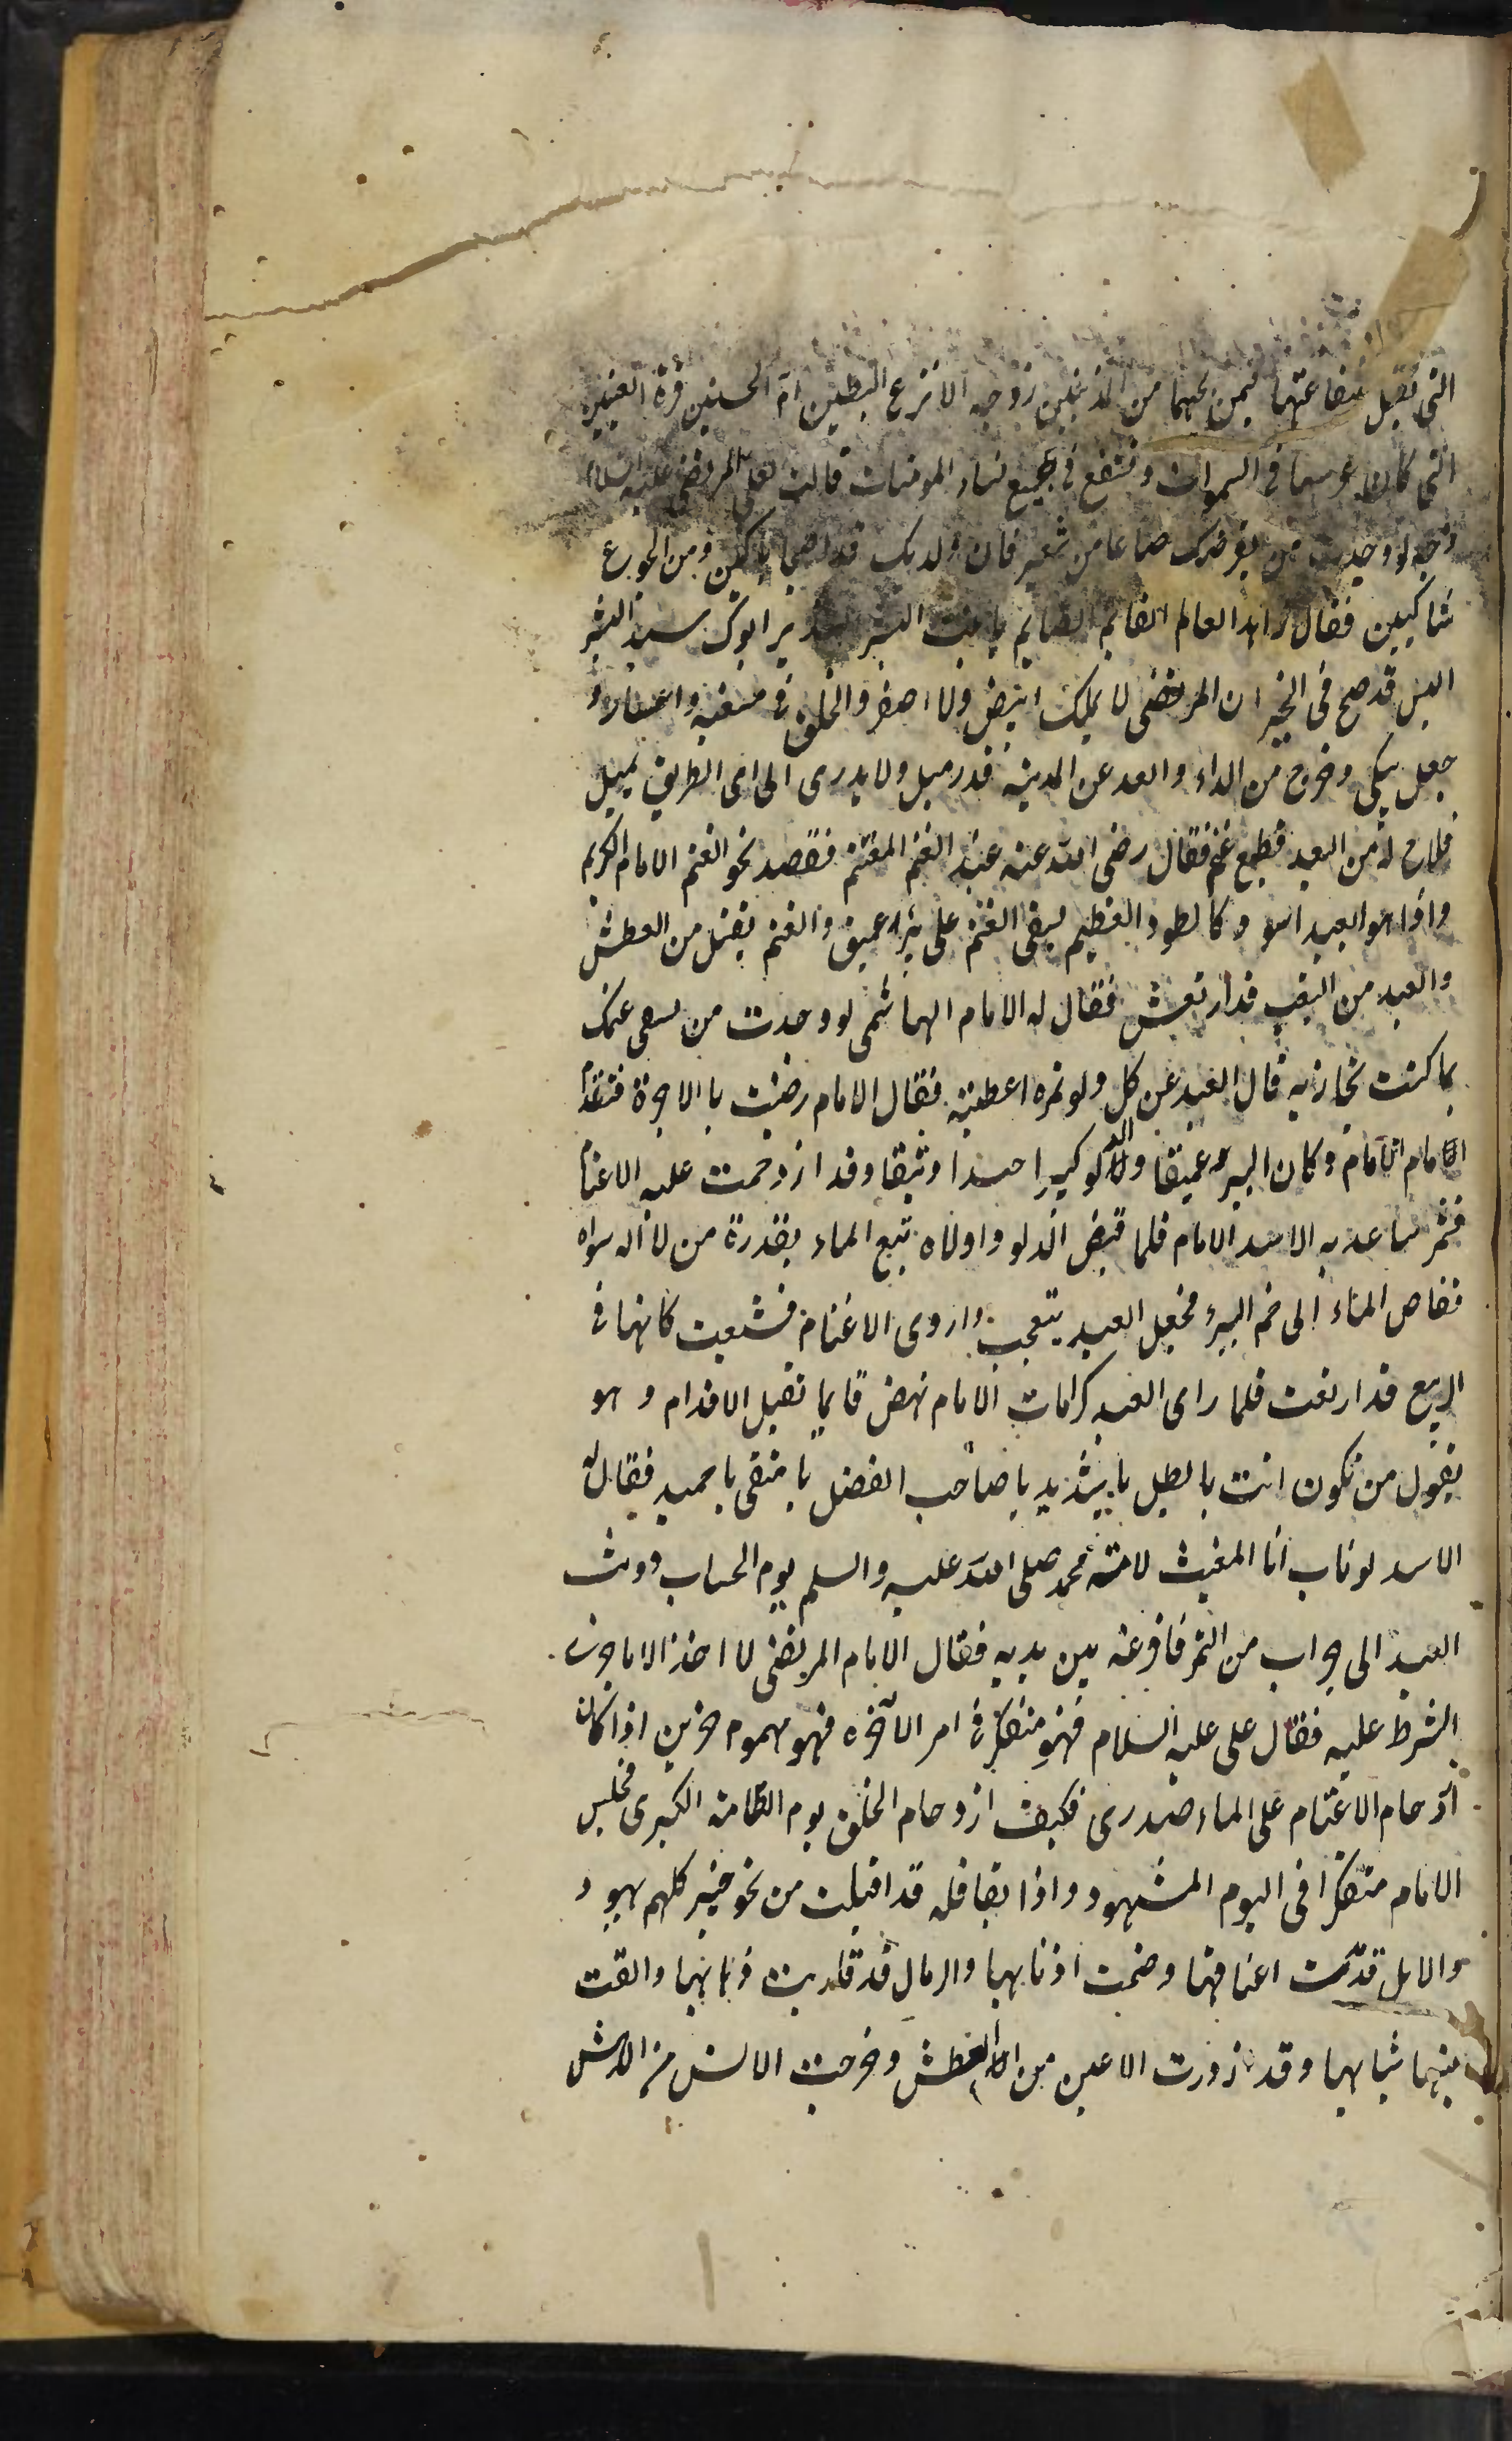 التی تقبل شفاعتها فیمن یحبها من المذنبین زوجه الانزع البطین ام الحسنین قرة العینین
التی کان عرسها فی السموات وتشفع فی جمیع نساء المومنات قالت لعلی المرتضی علیه السلام
لو وجدت من یقرضک صاعا من شعیر فان ولدیک قد اصبحا باکین ومن الجوع
شاکیین فقال زاهد العالم القایم الصایم یا بنت البشیر النذیر ابوک سید البشر
الیس قد صح فی الخبر ان المرتضی لا یملک ابیض ولا اصفر والخلق فی
جعل یبکی وخرج من الداء وابعد عن المدینه قدر میل ولا یدری الی ای الطریق یمیل
فلاح له من البعید قطیع غنم فقال رضی الله عنه عند الغنم المغتنم فقصد نحو الغنم الامام الکریم
واذا هو العبد اسود کالطود العظیم یسقی الغنم علی بئر عمیق والغنم یقتل من العطش
والعبد من التعب قد ارتعش فقال له الامام الهاشمی لو وجدت من یسقی غنمک
بما کنت تجازیه قال العبد عن کل دلو تمره اعطیته فقال الامام رضیت با الاجرة فتقدم
الامام وکان البیر عمیقا والدلو کبیرا جدا وثیقا وقد ازدحمت علیه الاغنام
فشمر ساعدیه الاسد الامام فلما قبض الدلو وادلاه تبع الماء بقدرة من لا اله سواه
ففاص الماء الی فم البیر فجعل العبد یتعجب واروی الاغنام فشبعت کانها فی
الربیع قد ارتعت فلما رای العبد کرامات الامام نهض قایما تقبل الاقدام وهو
یقول من تکون انت یا بطل یا شدید یا صاحب الفضل یا متقی یا حمید فقال له
الاسد لوناب انا المغیث لامة محمد صلی الله علیه والسلم یوم الحساب ووثب
العبد الی جراب من التمر فافرغه بین یدیه فقال الامام المرتضی لا اخذ الا ما جری
الشرط علیه فقال علی علیه السلام فهو متفکر فی امر الآخرة فهو مهموم حزین اذا کان
ازدحام الاغنام علی الماء ضدری فکیف ازدحام الخلق یوم الطامة الکبری فجلس
الامام متفکرا فی الیوم المشهود واذا بقافله قد اقبلت من نحو خیبر کلهم یهود
والابل قد مدت اعناقها وضمت اذنابها والرمال قد قلدبت ذبابها والقت
منها ثیابها وقد ازورت الاعین من العطش وخرجت الالسن من